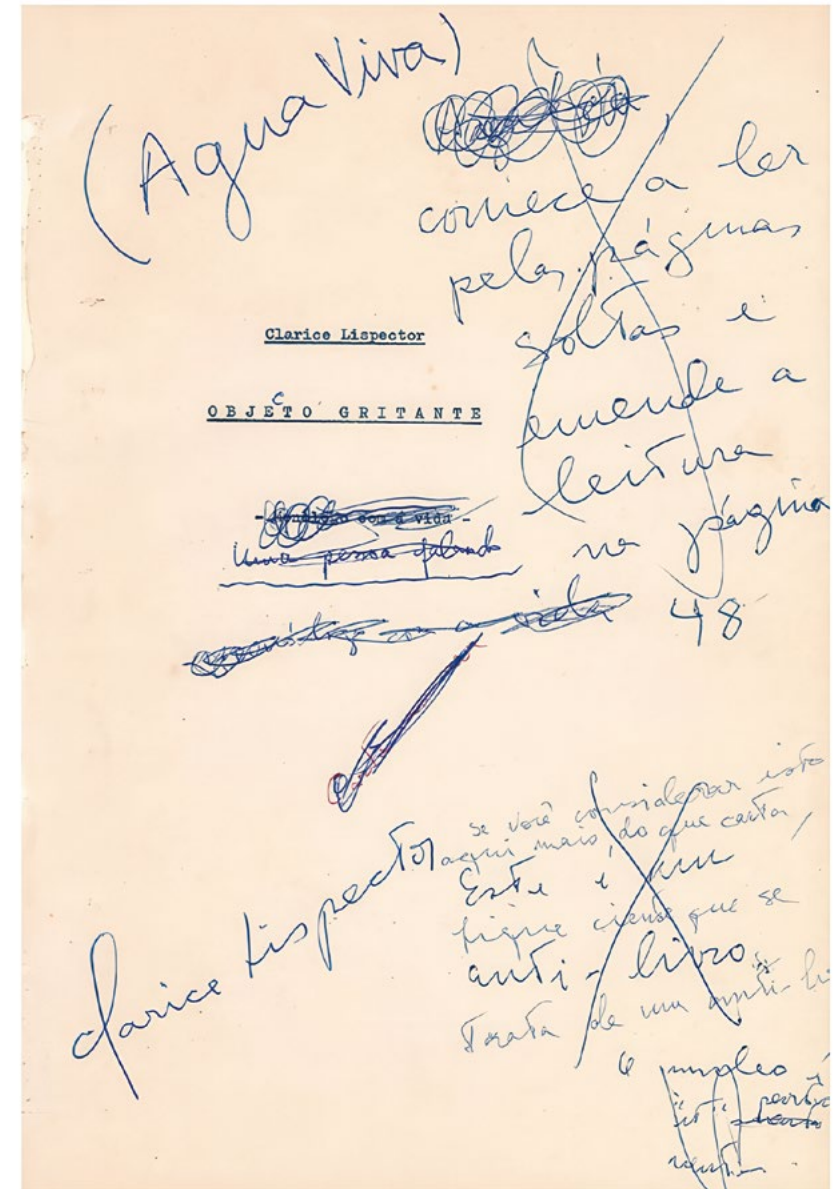 (Agua Viva)
comece a ler
pelas páginas
soltas e
emende a
leitura
na página
48
Clarice Lispector
C
OBJETO GRITANTE
com a vida -
Uma pessoa falando
com a vida
Clarice Lispector
se você considerar isto
aqui mais do que carta,
Este é um
fique ciente que se
anti-livro.
trata de um anti-li
O
é